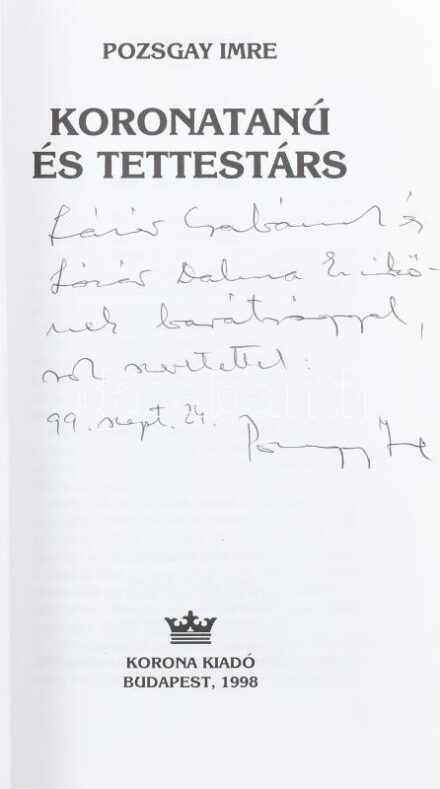 POZSGAY IMRE
KORONATANÚ
ÉS TETTESTÁRS
Lázár Csabának és
Lázár Dalma Enikő-
nek barátsággal,
sok szeretettel:
99. szept. 24. Pozsgay Imre
KORONA KIADÓ
BUDAPEST, 1998